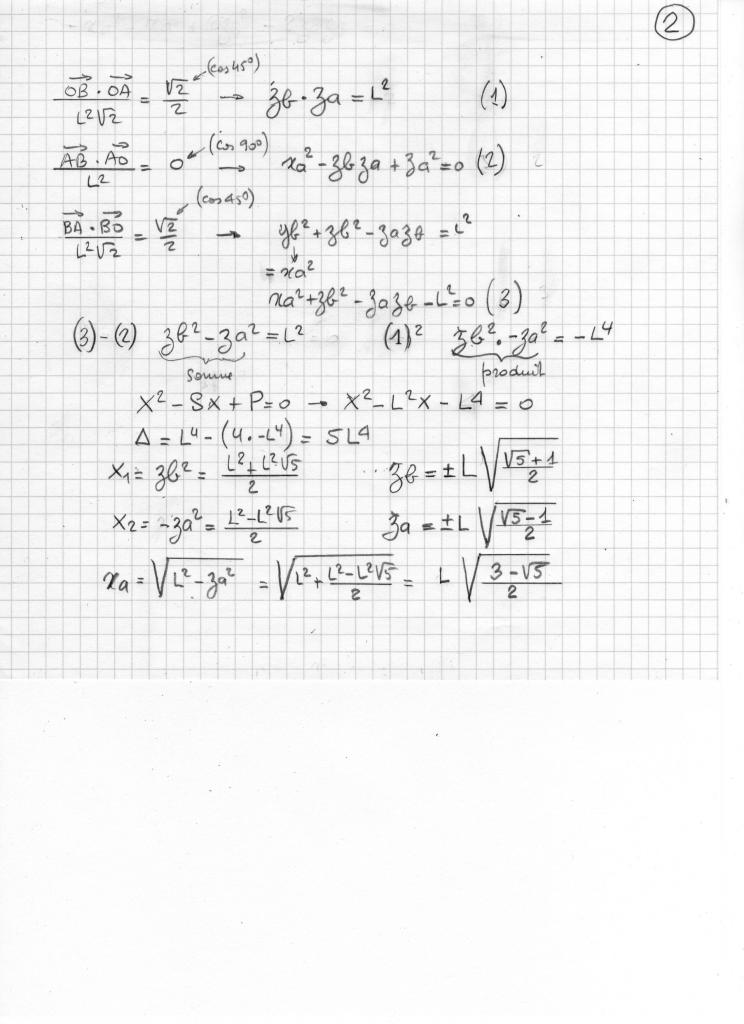 2
(cos 45°)
OB⃗ · OA⃗ / L²√2 = √2/2 → zb · za = L² (1)
(cos 90°)
AB⃗ · AO⃗ / L² = 0 → xa² - zb za + za² = 0 (2)
(cos 45°)
BA⃗ · BO⃗ / L²√2 = √2/2 → yb² + zb² - za zb = L²
↓
= xa²
xa² + zb² - za zb - L² = 0 (3)
(3) - (2) zb² - za² = L² (1)² zb² · -za² = -L⁴
somme produit
X² - Sx + P = 0 → X² - L²x - L⁴ = 0
Δ = L⁴ - (4 · -L⁴) = 5L⁴
X₁ = zb² = (L² + L²√5)/2 zb = ± L √((√5 + 1)/2)
X₂ = -za² = (L² - L²√5)/2 za = ± L √((√5 - 1)/2)
xa = √(L² - za²) = √(L² + (L² - L²√5)/2) = L √((3 - √5)/2)